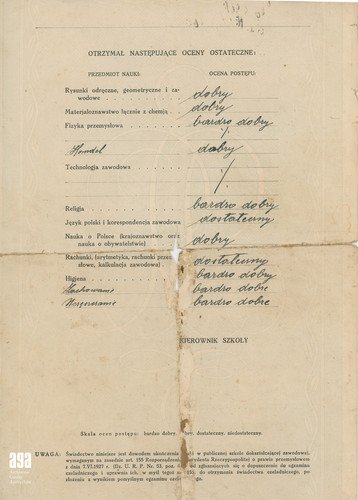 OTRZYMAŁ NASTĘPUJĄCE OCENY OSTATECZNE:
PRZEDMIOT NAUKI: OCENA POSTĘPU:
Rysunki odręczne, geometryczne i za-
wodowe dobry
Materjaloznawstwo łącznie z chemją dobry
Fizyka przemysłowa bardzo dobry
Handel dobry
Technologja zawodowa
Religia bardzo dobry
Język polski i korespondencja zawodowa dostateczny
Nauka o Polsce (krajoznawstwo oraz
nauka o obywatelstwie) dobry
Rachunki, (arytmetyka, rachunki przemy-
słowe, kalkulacja zawodowa) dostateczny
Higjena bardzo dobry
Zachowanie bardzo dobre
bardzo dobre
KIEROWNIK SZKOŁY
Skala ocen postępu: bardzo dobry, dobry, dostateczny, niedostateczny.
UWAGA: Świadectwo niniejsze jest dowodem ukończenia publicznej szkoły dokształcającej zawodowej,
wymaganym na zasadzie art. 155 Rozporządzenia Prezydenta Rzeczypospolitej o prawie przemysłowem
z dnia 7.VI.1927 r. (Dz. U. R. P. Nr. 53, poz. od zgłaszających się o dopuszczenie do egzaminu
czeladniczego i uprawnia ich, w myśl do otrzymania świadectwa czeladniczego, po
złożeniu z wynikiem pomyślnym egzaminu
aga